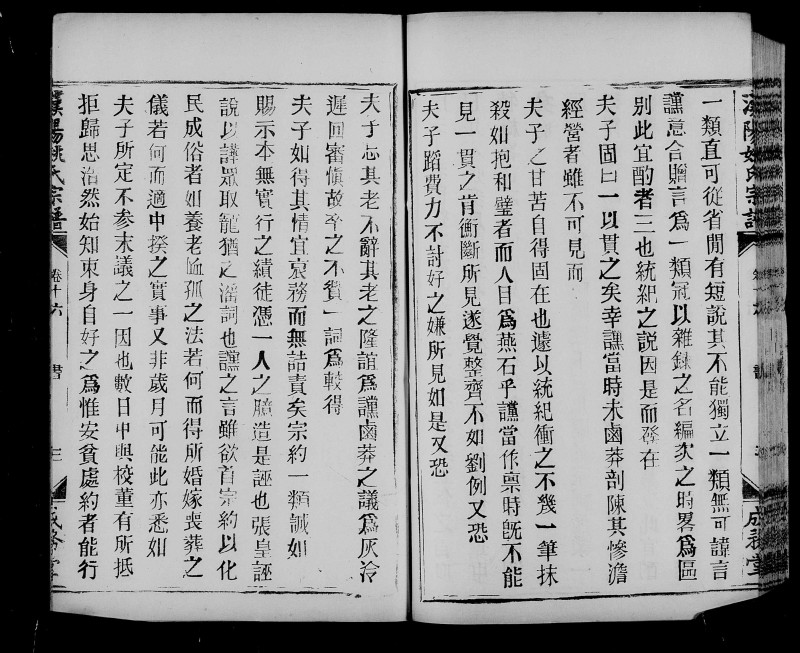 漢陽姚氏宗譜
成務堂
一類直可從省閒有短說其不能獨立一類無可諱言
謹意合贈言爲一類冠以雜錄之名編次之時畧爲區
別此宜酌者三也統紀之說因是而發在
夫子固曰一以貫之矣幸謹當時未鹵莽剖陳其慘澹
經營者雖不可見而
夫子之甘苦自得固在也遽以統紀衝之不幾一筆抹
殺如抱和璧者而人目爲燕石乎謹當作稟時旣不能
見一貫之肯衝斷所見遂覺整齊不如劉例又恐
夫子蹈費力不討好之嫌所見如是又恐
夫子忘其老不辭其老之隆誼爲謹鹵莽之議爲灰冷
遲回審愼故卒之不贊一詞爲較得
夫子如得其情宜哀務而無詰責矣宗約一類誠如
賜示本無實行之績徒憑一人之臆造是誣也張皇誣
說以譁眾取寵猶之滛詞也謹之言雖欲首宗約以化
民成俗者如養老恤孤之法若何而得所婚嫁喪葬之
儀若何而適中揆之實事又非歲月可能此亦悉如
夫子所定不参末議之一因也數日中與校董有所抵
拒歸思浩然始知束身自好之爲惟安貧處約者能行
漢陽姚氏宗譜
卷十六
書
三
成務堂